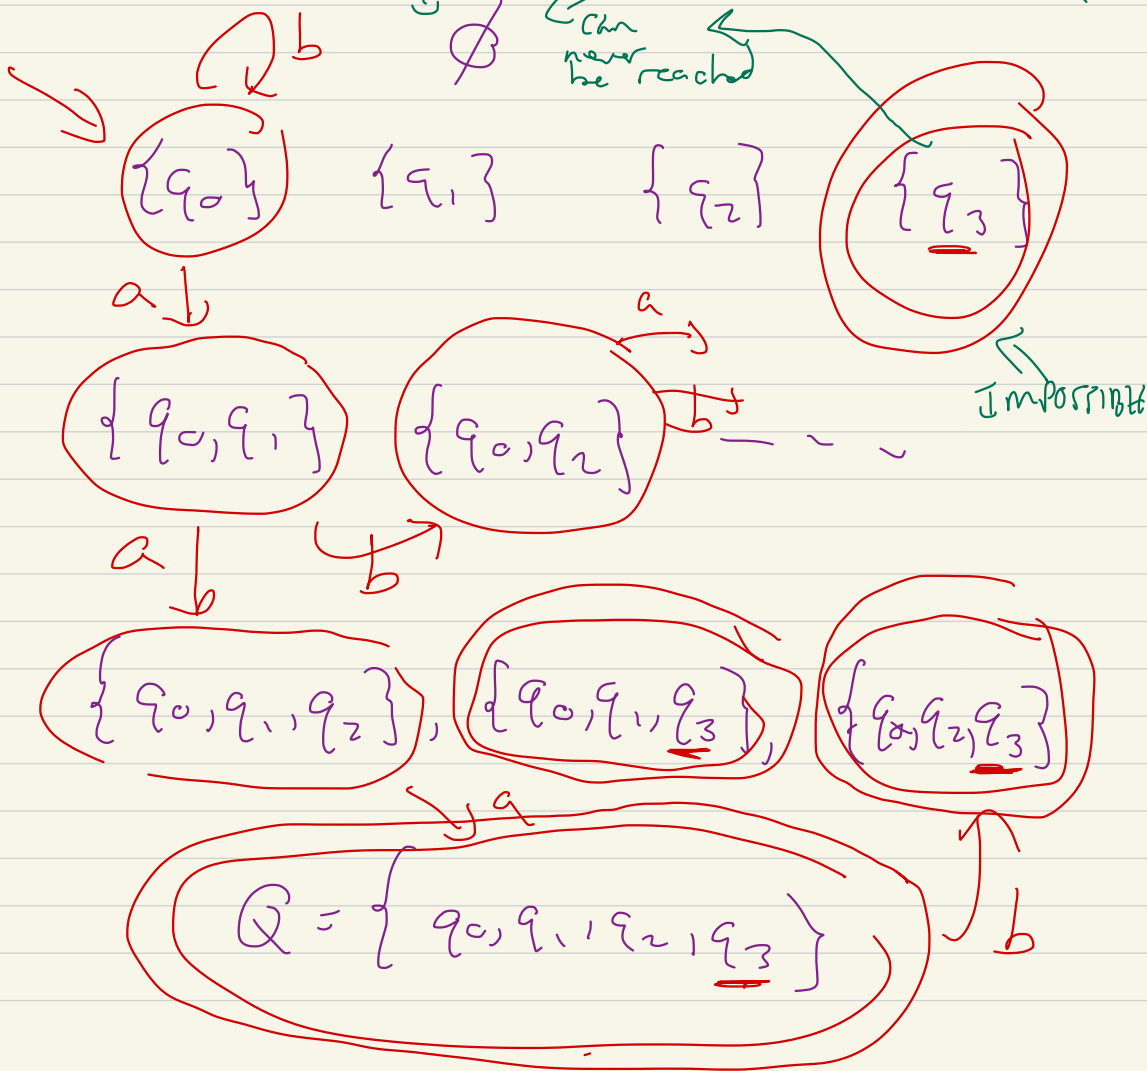 b
∅ can
never
be reached
{q0} {q1} {q2} {q3}
a
a
Impossible
{q0,q1} {q0,q2} b - - -
a b
{q0,q1,q2}, {q0,q1,q3}, {q0,q2,q3}
a
Q = {q0,q1,q2,q3} b